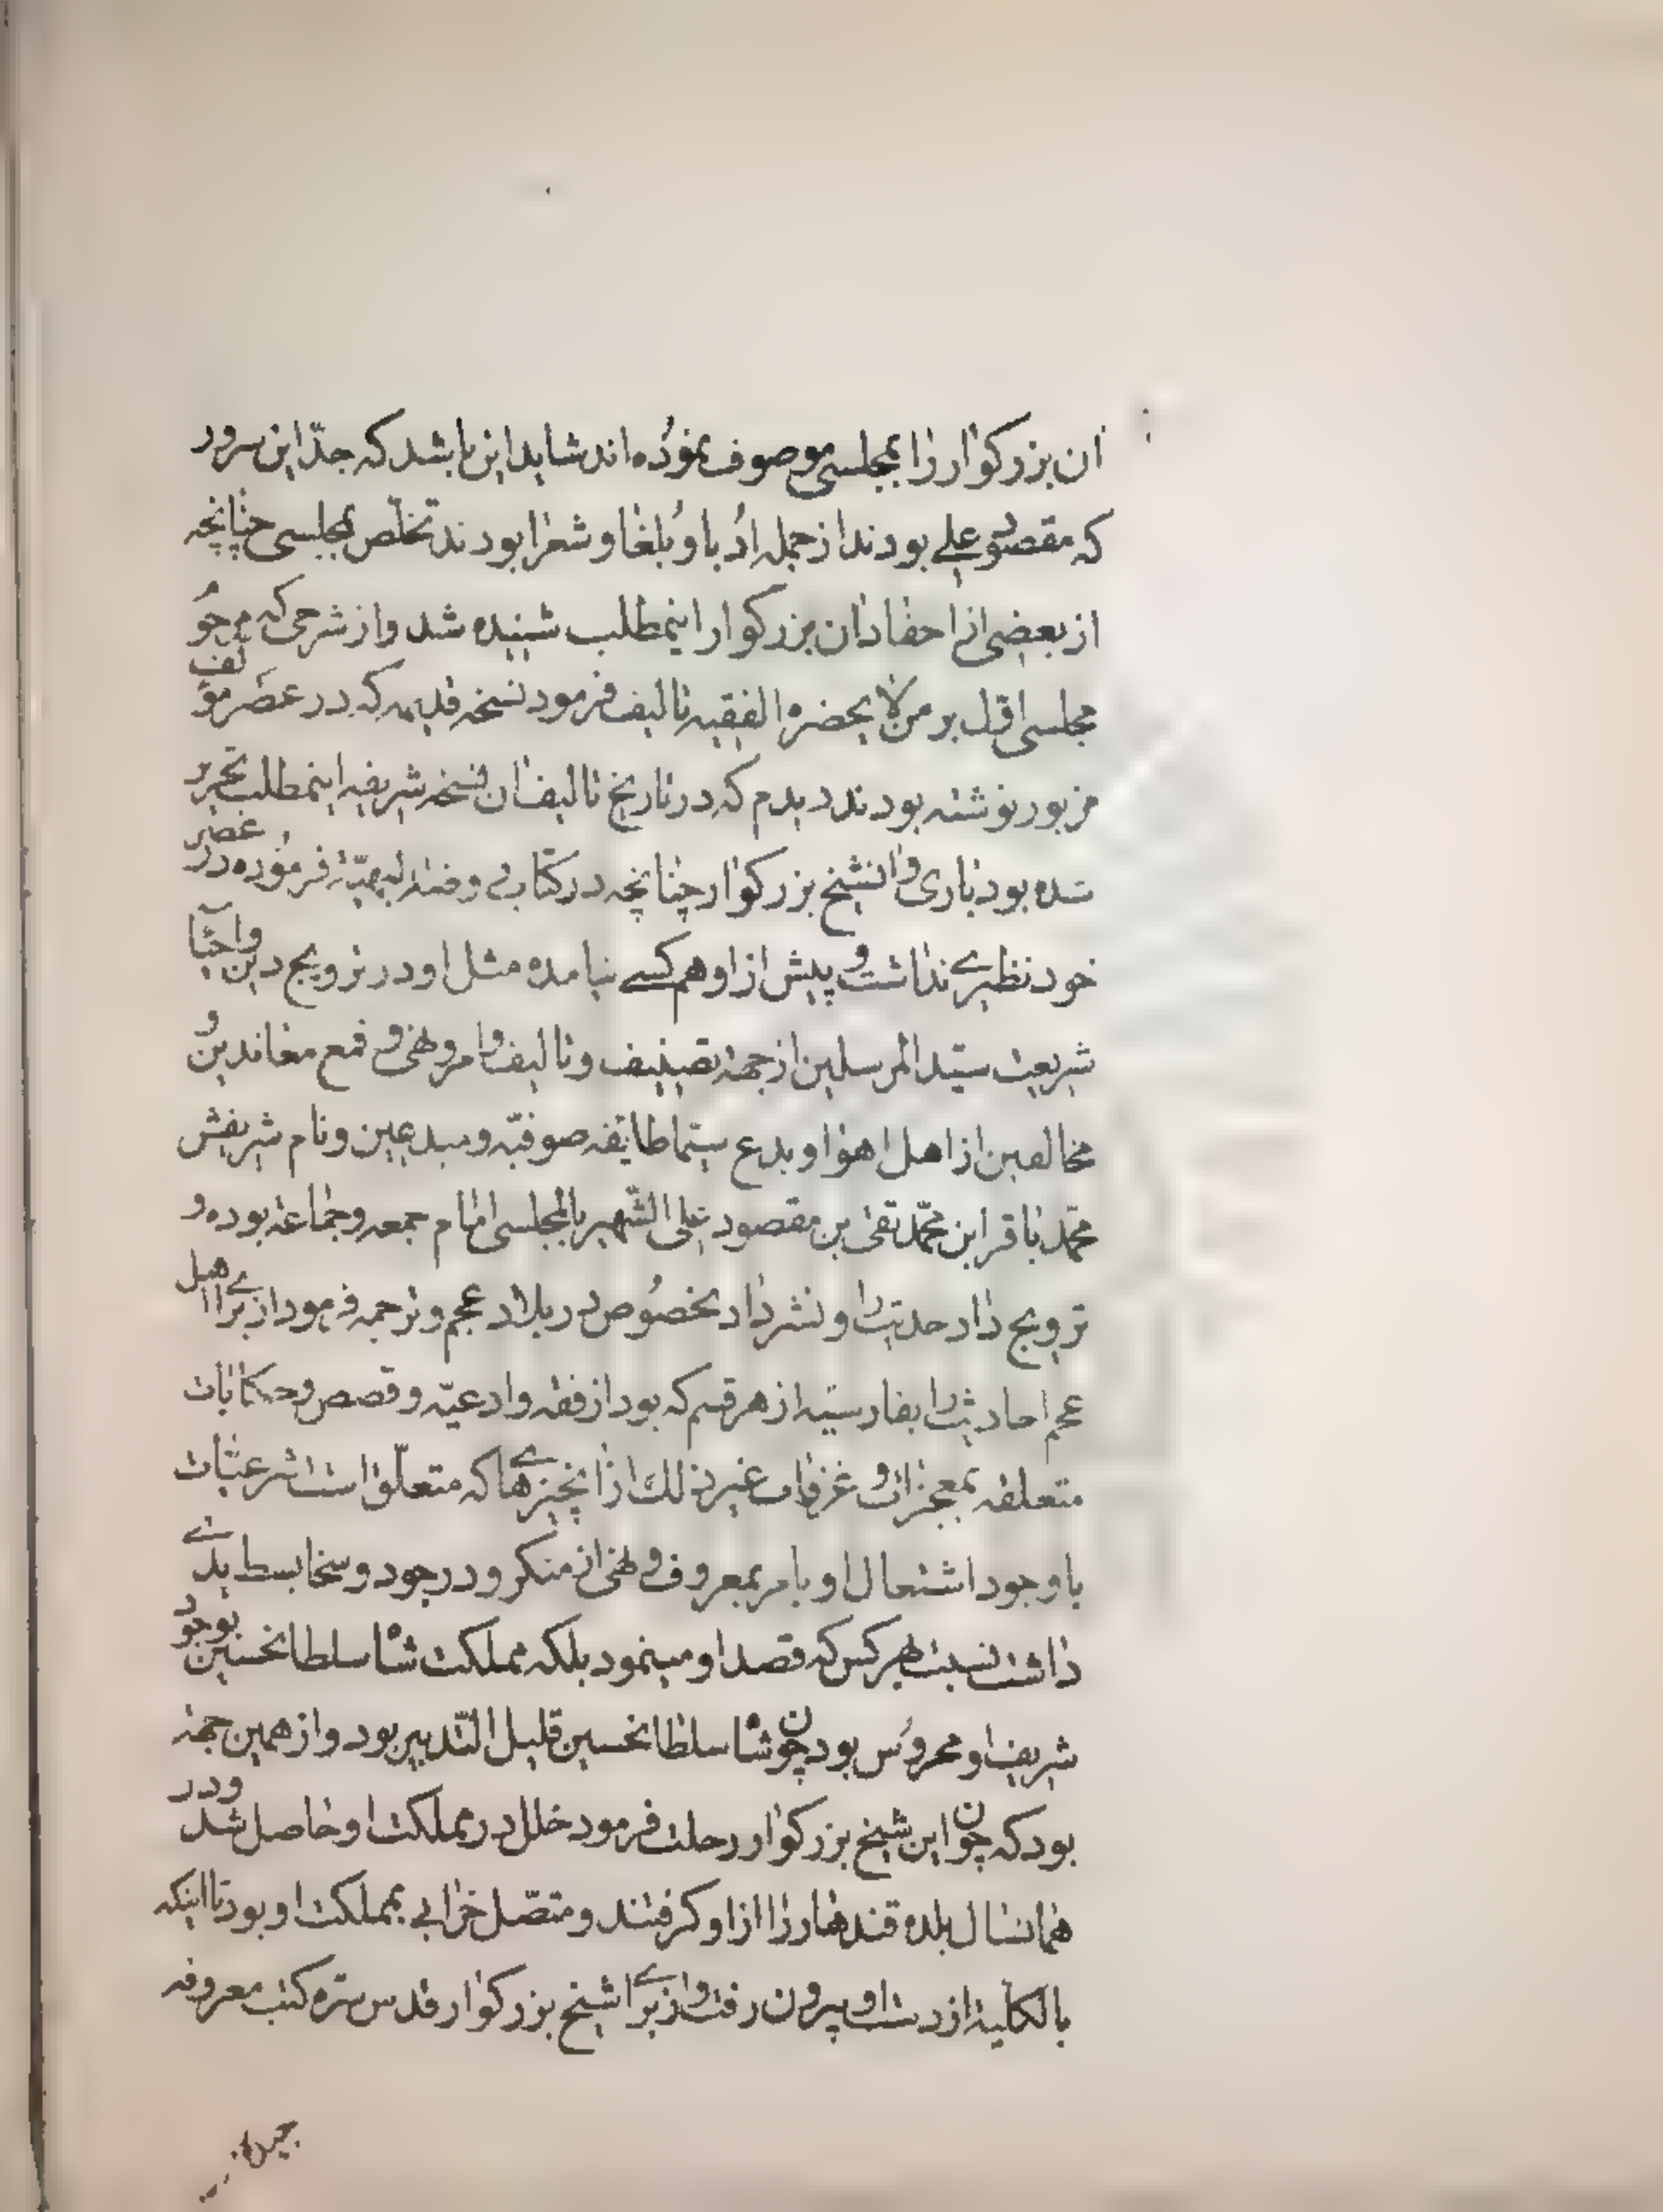 آن بزرکوار را بمجلسی موصوف نموده اند شاید این باشد که جدّ این سرور
که مقصود علی بودند از جمله ادبا و بلغا و شعرا بودند تخلّص بمجلسی چنانچه
از بعضی از احفاد آن بزرکوار اینمطلب شنیده شد و از شرحی که مرحوم
مجلسی اوّل بر من لا یحضره الفقیه تالیف فرمود نسخه قدیمه که در عصر مؤلف
مزبور نوشته بودند دیدم که در تاریخ تالیف آن نسخه شریفه اینمطلب تحریر
شده بود باری و انشیخ بزرکوار چنانچه در کتاب روضة البهیّة فرموده در عصر
خود نظیری نداشت و پیش از او هم کسی نیامده مثل او در ترویج دین و احیآ
شریعت سیّد المرسلین از جهة تصنیف و تالیف و امر و نهی و قمع معاندین و
مخالفین از اهل اهوا و بدع سیّما طایفه صوفیّه و مبدعین و نام شریفش
محمّد باقر ابن محمّد تقی بن مقصود علی الشّهیر بالمجلسی امام جمعه و جماعة بوده و
ترویج داد حدیث را و نشر داد بخصوص در بلاد عجم و ترجمه فرمود از برای اهل
عجم احادیث را بفارسیّه از هر قسم که بود از فقه و ادعیّه و قصص و حکایات
متعلقه بمعجزات و غزوات غیر ذلك از انچیزهای که متعلّق است بشرعیّات
با وجود اشتعال او بامر بمعروف و نهی از منکر و در جود و سخا بسط ید
داشت نسبت بهر کس که قصد او مینمود بلکه مملکت شاه سلطانحسین بوجود
شریف او محروس بود چون شاه سلطانحسین قلیل التّدبیر بود و از همین جهة
بود که چون این شیخ بزرکوار رحلت فرمود خلل در مملکت او حاصل شد و در
همانسال بلده قندهار را از او کرفتند و متصّل خرابی بمملکت او بود تا اینکه
بالکلیة از دست او بیرون رفت و از برای شیخ بزرکوار قدس سره کتب معروفه